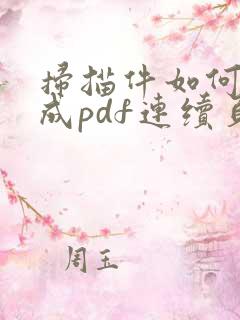 掃描件如何
成pdf連續
周玉